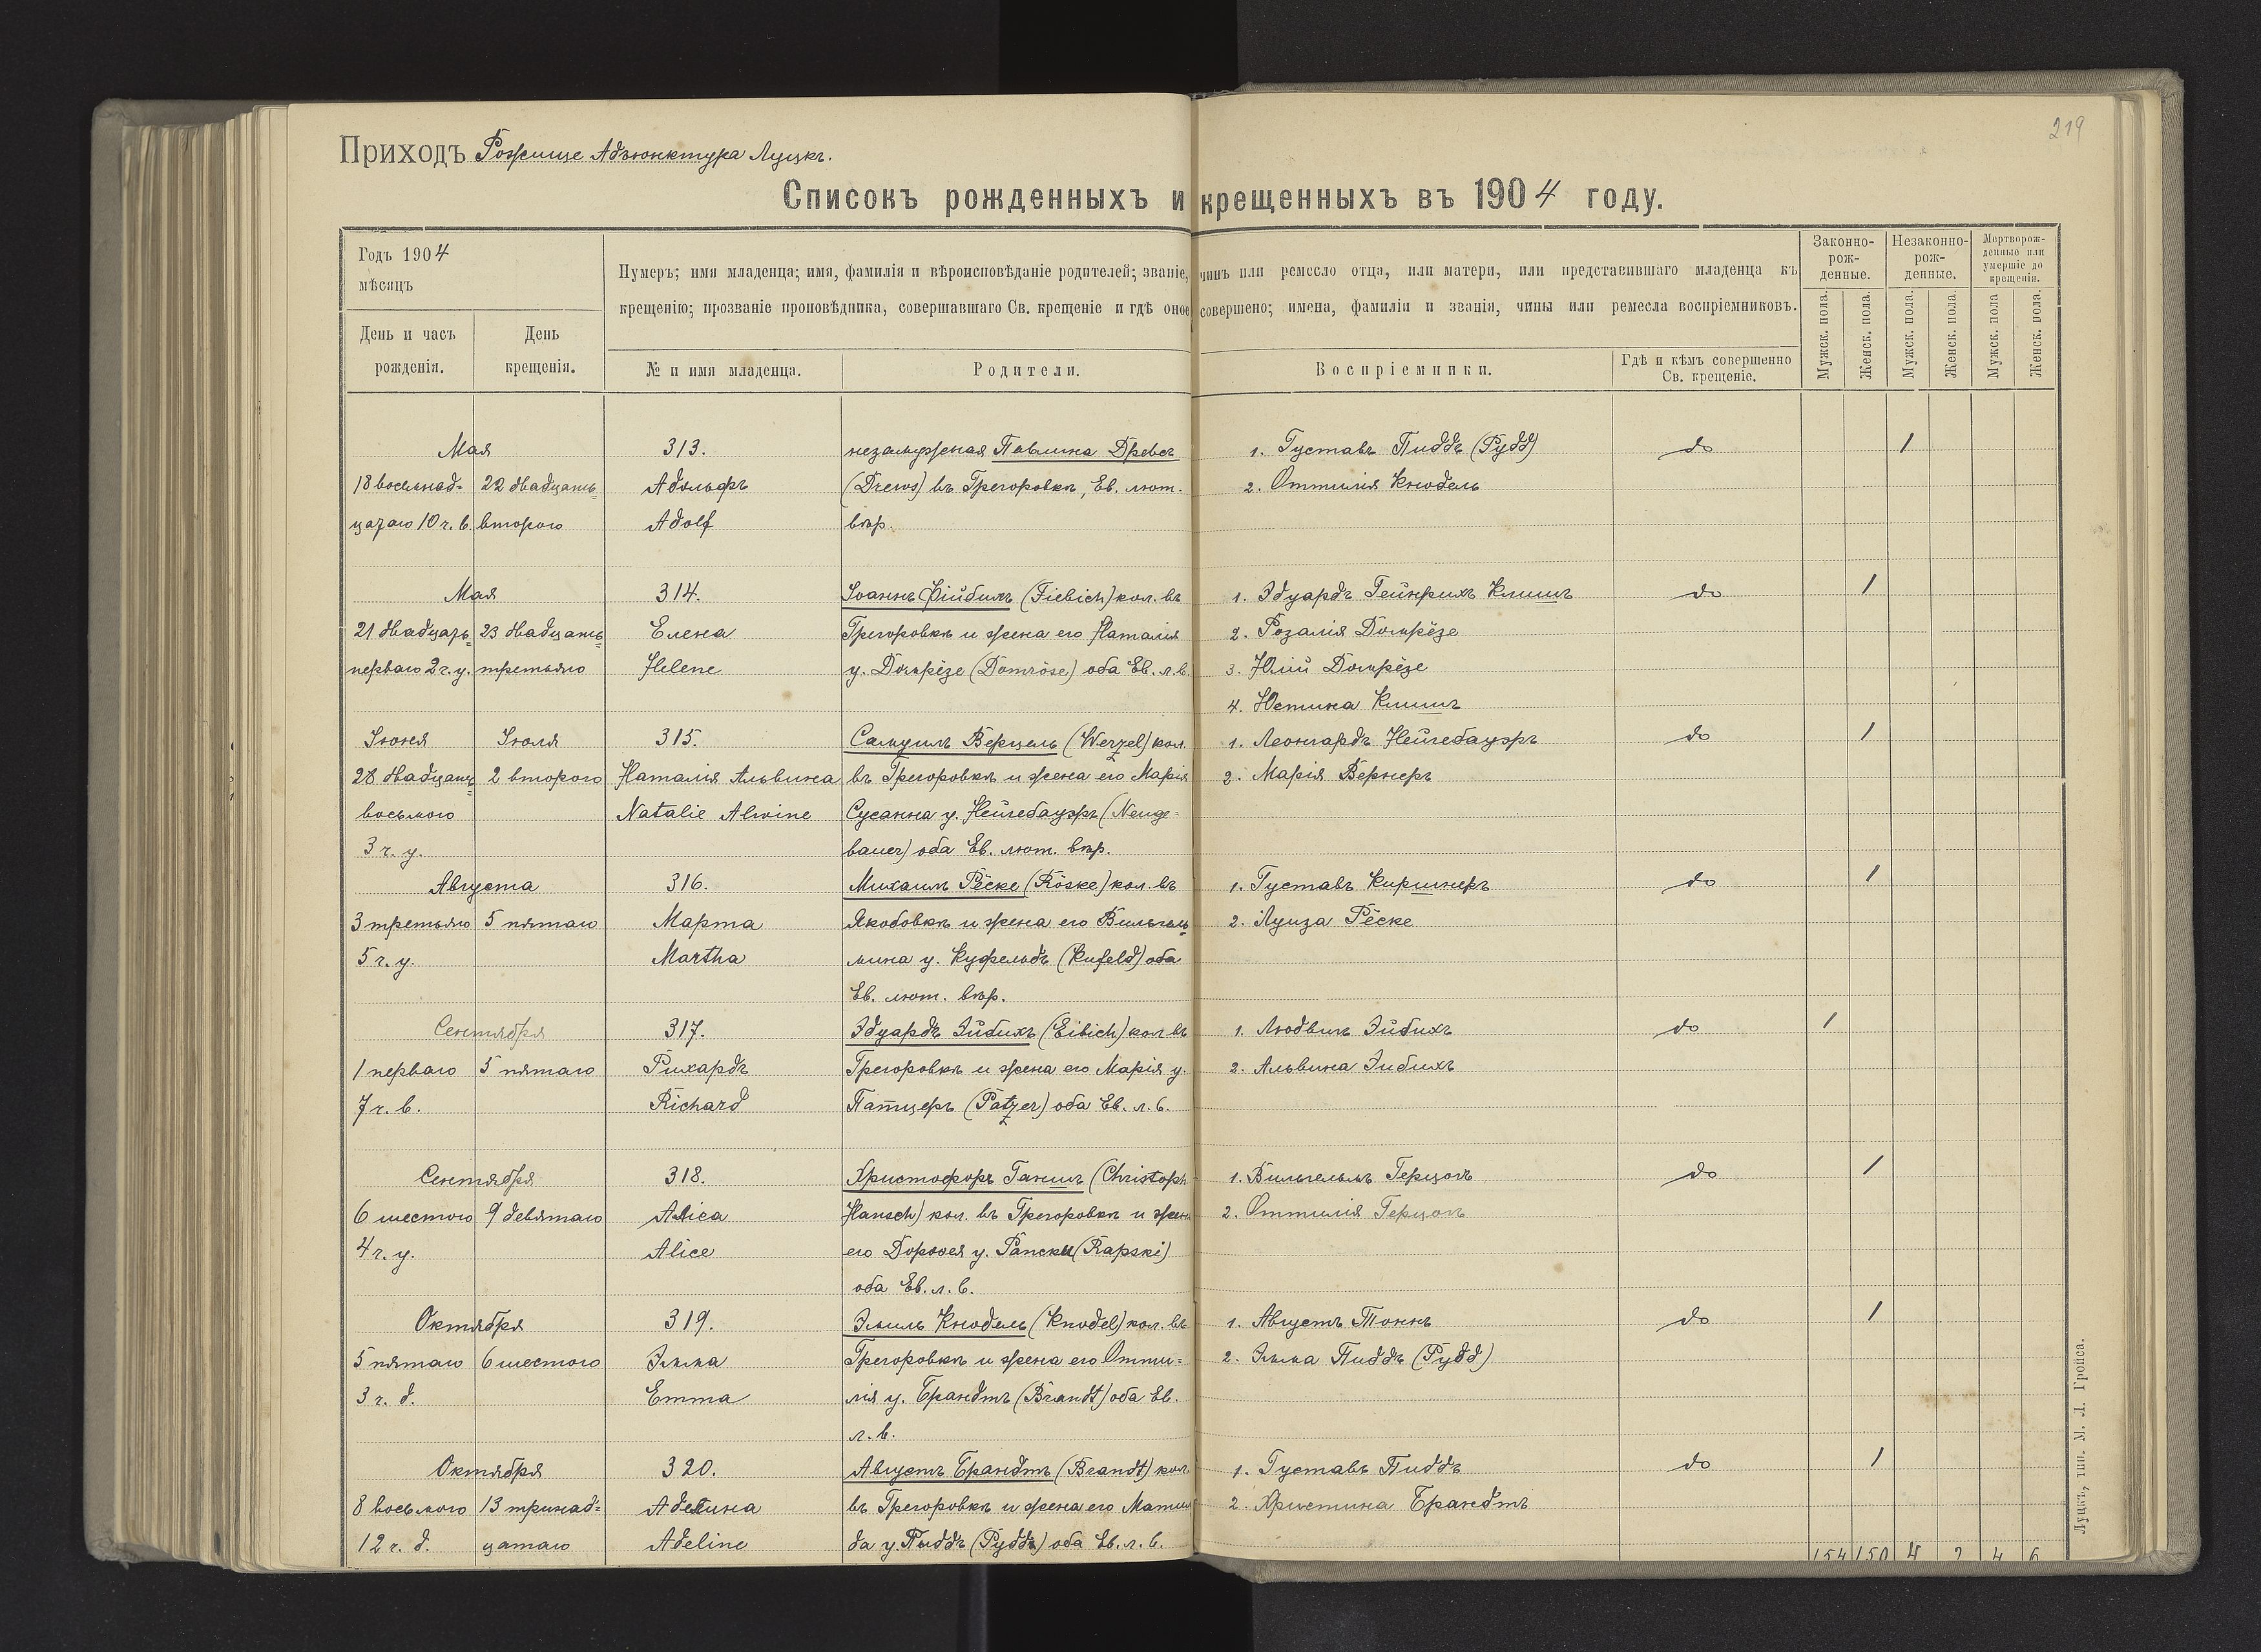 219
Приходъ Рожище Адъюнктура Луцкъ.
Списокъ рожденныхъ и крещенныхъ въ 1904 году.
Годъ 1904
мѣсяцъ
День и часъ рожденія.
День крещенія.
Нумеръ; имя младенца; имя, фамилія и вѣроисповѣданіе родителей; званіе, чинъ или ремесло отца, или матери, или представившаго младенца къ
крещенію; прозваніе проповѣдника, совершавшаго Св. крещеніе и гдѣ оное совершено; имена, фамиліи и званія, чины или ремесла воспріемниковъ.
№ и имя младенца.
Родители.
Воспріемники.
Гдѣ и кѣмъ совершенно Св. крещеніе.
Законно-рож-денные.
Незаконно-рож-денные.
Мертворож-денные или умершіе до крещенія.
Мужск. пола.
Женск. пола.
Мужск. пола.
Женск. пола.
Мужск. пола
Женск. пола.
Мая 313. незамужная Павлина Древсъ 1. Густавъ Пиддъ (Рудд) do 1
18 восемнад= 22 двадцать= Адольфъ (Drews) въ Грегоровкѣ, Ев. лют. 2. Оттилія Кнодель
цатаго 10 ч. в. второго Adolf вѣр.
Мая 314. Іоаннъ Фійбихъ (Fiebich) кол. въ 1. Эдуардъ Гейнрихъ Климъ do 1
21 двадцать= 23 двадцать= Елена Грегоровкѣ и жена его Наталія 2. Розалія Домрёзе
перваго 2 ч. у. третьяго Helene у. Домрёзе (Domröse) оба Ев. л. в. 3. Юлій Домрёзе
4. Юстина Климъ
Іюня Іюля 315. Самуилъ Верцель (Werzel) кол. 1. Леонгардъ Нейгебауэръ do 1
28 двадцать= 2 второго Наталія Альвина въ Грегоровкѣ и жена его Марія 2. Марія Вернеръ
восьмого Natalie Alwine Сусанна у. Нейгебауэръ (Neuge=
3 ч. у. bauer) оба Ев. лют. вѣр.
Августа 316. Михаилъ Рёске (Röske) кол. въ 1. Густавъ Киршнеръ do 1
3 третьяго 5 пятаго Марта Якобовкѣ и жена его Вильгель= 2. Луиза Рёске
5 ч. у. Martha мина у. Куфельдъ (Kufeld) оба
Ев. лют. вѣр.
Сентября 317. Эдуардъ Эйбихъ (Eibich) кол въ 1. Людвигъ Эйбихъ do 1
1 перваго 5 пятаго Рихардъ Грегоровкѣ и жена его Марія у. 2. Альвина Эибихъ
7 ч. в. Richard Патцеръ (Patzer) оба Ев. л. в.
Сентября 318. Христофоръ Ганшъ (Christoph 1. Вильгельмъ Герцогъ do 1
6 шестого 9 девятаго Алиса Hansch) кол. въ Грегоровкѣ и жена 2. Оттилія Герцогъ
4 ч. у. Alice его Доротея у. Рапски (Rapski)
оба Ев. л. в.
Октября 319. Эмиль Кнодель (Knodel) кол. въ 1. Августъ Тоннъ do 1
5 пятаго 6 шестого Эмма Грегоровкѣ и жена его Отти= 2. Эмма Пиддъ (Рудд)
3 ч. д. Emma лія у. Брандтъ (Brandt) оба Ев.
л. в.
Октября 320. Августъ Брандтъ (Brandt) кол. 1. Густавъ Пиддъ do 1
8 восьмого 13 тринад= Аделина въ Грегоровкѣ и жена его Матиль 2. Христина Брандтъ
12 ч. д. цатаго Adeline да у. Пыддъ (Руддъ) оба Ев. л. в.
154 150 4 2 4 6
Луцкъ, тип. М. Л. Гройса.